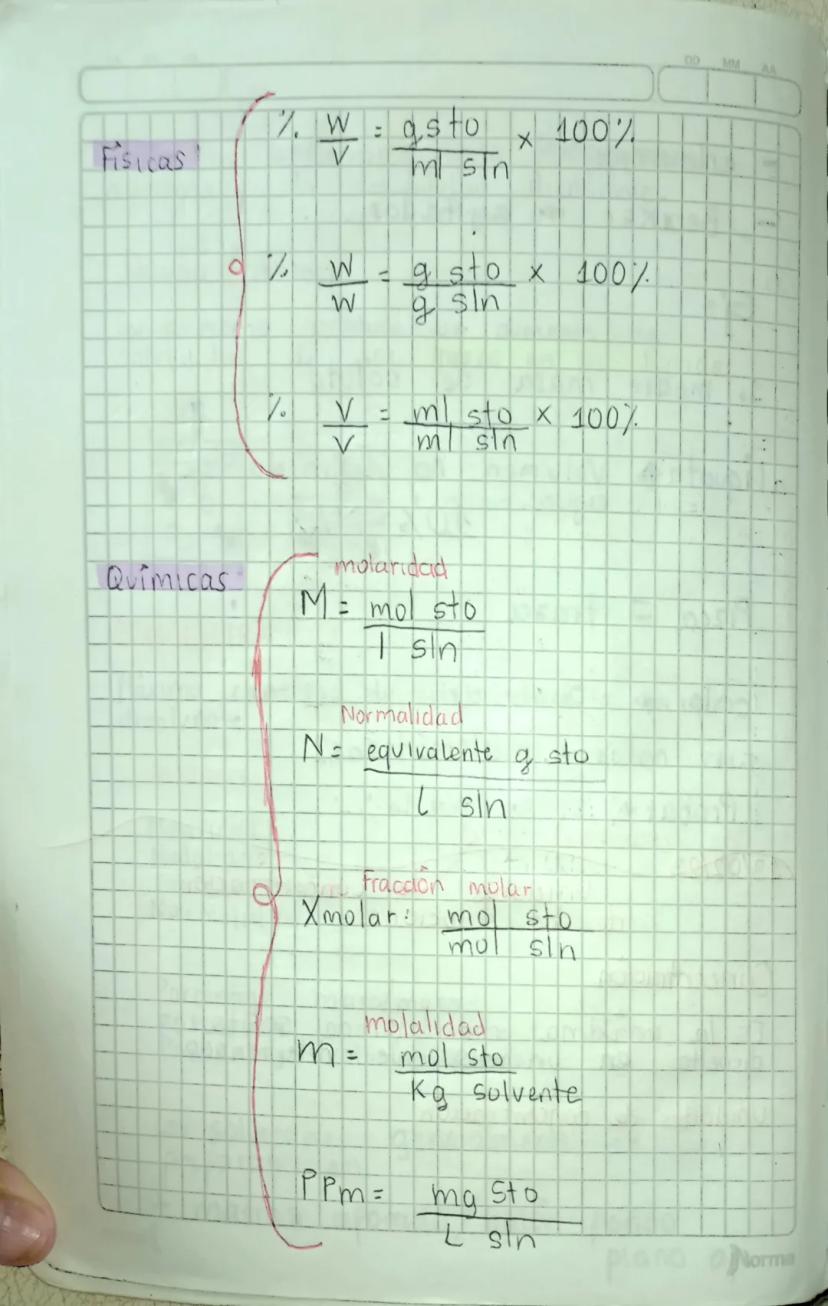 DD MM AA
Físicas
% W/V = g sto / ml sln x 100%
% W/W = g sto / g sln x 100%
% V/V = ml sto / ml sln x 100%
Químicas
molaridad
M = mol sto / l sln
Normalidad
N = equivalente g sto / L sln
Fracción molar
Xmolar: mol sto / mol sln
molalidad
m = mol sto / Kg solvente
PPm = mg sto / L sln
Norma